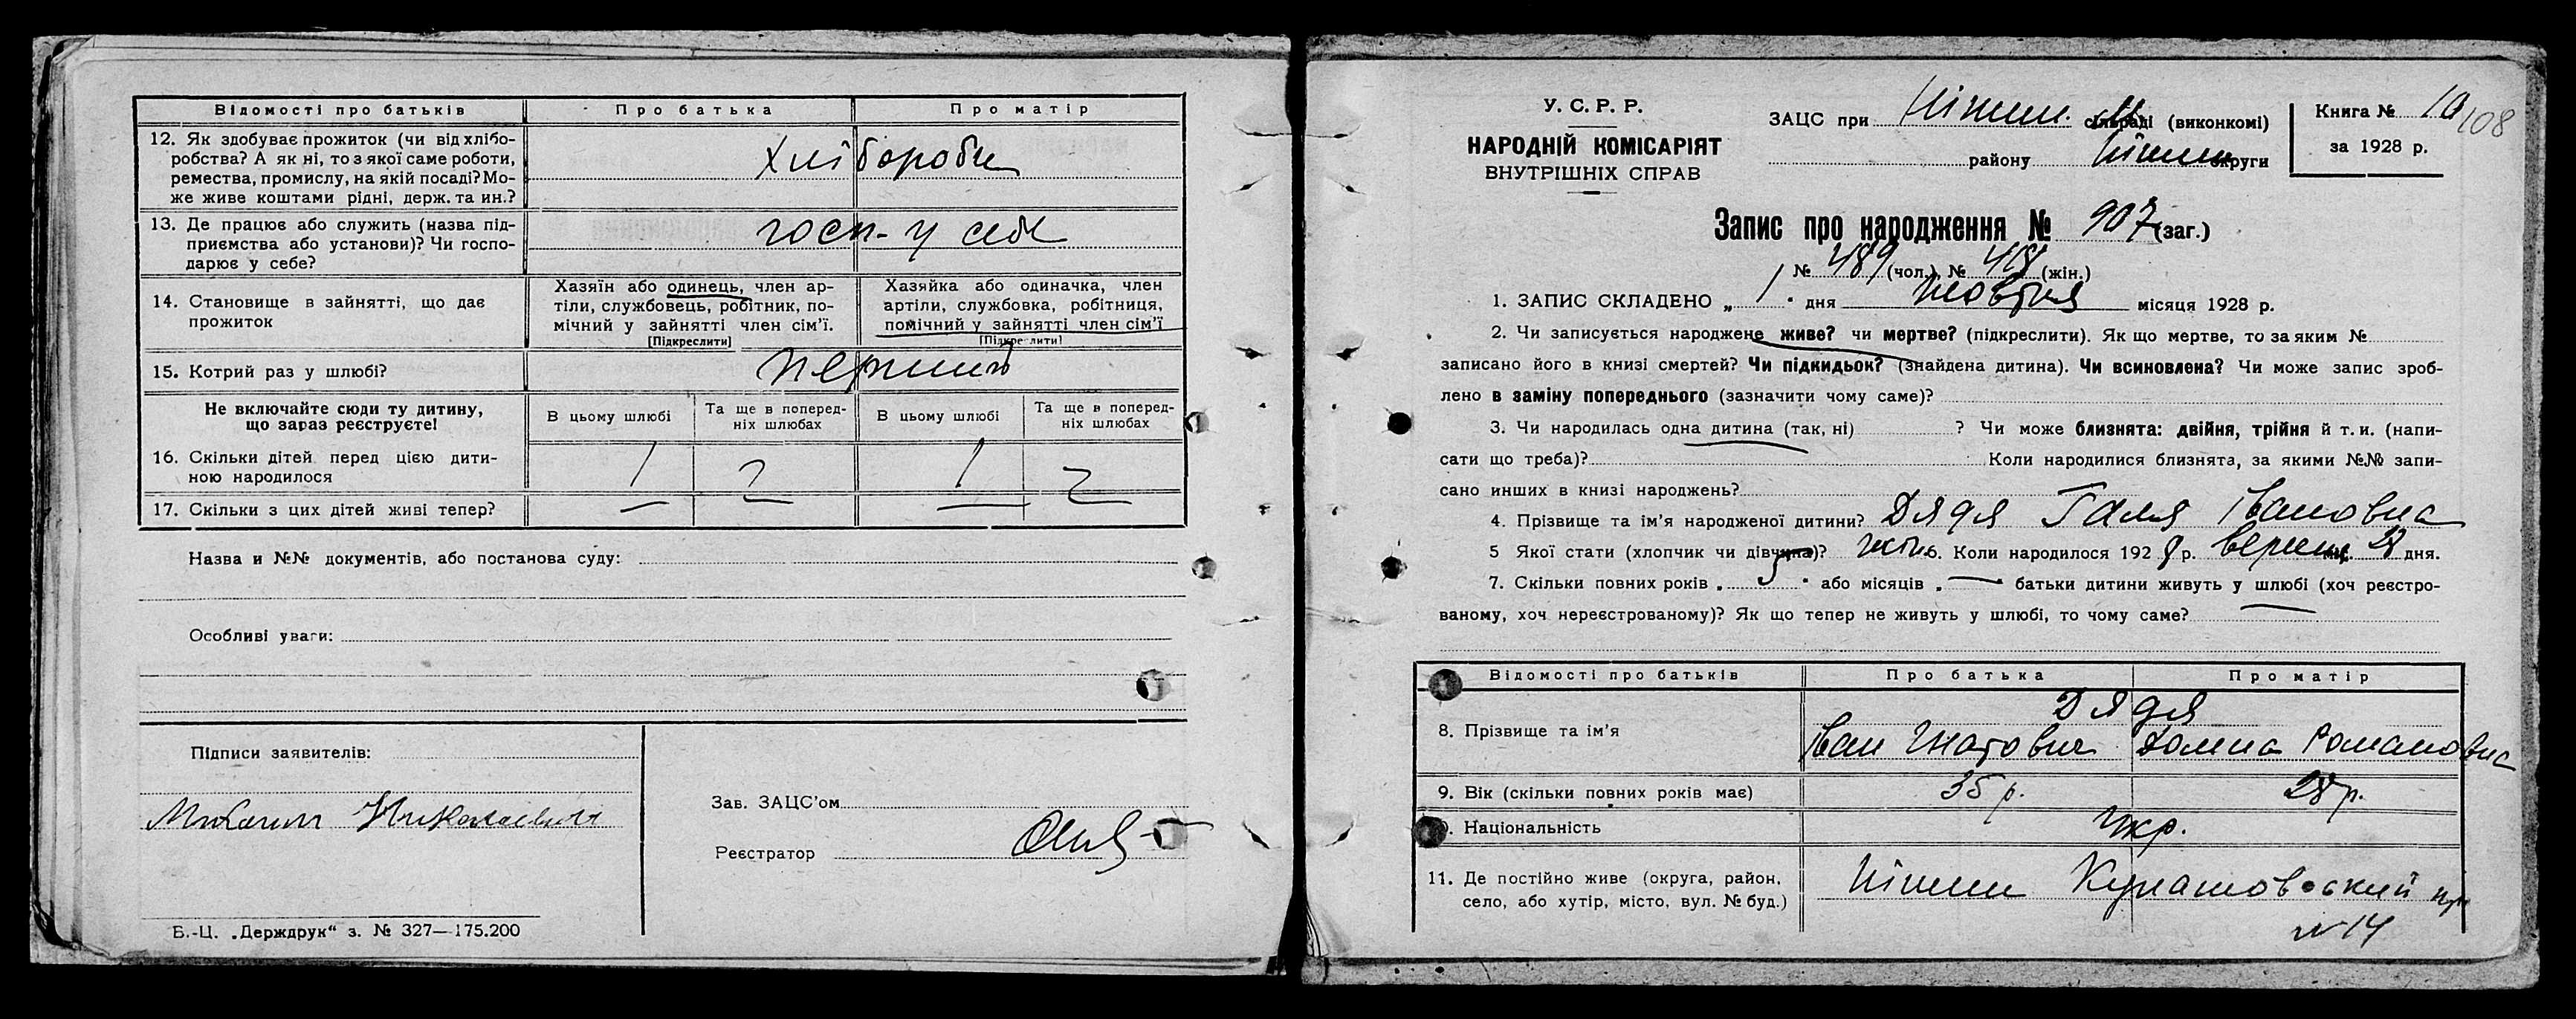 Відомості про батьків Про батька Про матір
12. Як здобуває прожиток (чи від хлібо-
робства? А як ні, то з якої саме роботи,
ремества, промислу, на якій посаді? Мо-
же живе коштами рідні, держ. та ин.?
хлібороби
13. Де працює або служить (назва під-
приємства або установи)? Чи госпо-
дарює у себе?
госп- у себе
14. Становище в зайнятті, що дає
прожиток
Хазяїн або одинець, член ар-
тіли, службовець, робітник, по-
мічний у зайнятті член сім'ї.
[Підкреслити]
Хазяйка або одиначка, член
артіли, службовка, робітниця,
помічний у зайнятті член сім'ї
[Підкреслити]
15. Котрий раз у шлюбі?
перший
Не включайте сюди ту дитину,
що зараз реєструєте!
В цьому шлюбі Та ще в поперед-
ніх шлюбах В цьому шлюбі Та ще в поперед-
ніх шлюбах
16. Скільки дітей перед цією дити-
ною народилося
1 1
17. Скільки з цих дітей живі тепер? — —
Назва и №№ документів, або постанова суду:
Особливі уваги:
Підписи заявителів:
Зав. ЗАЦС'ом
Реєстратор
Б.-Ц. „Держдрук“ з. № 327—175.200
У. С. Р. Р.
НАРОДНІЙ КОМІСАРІЯТ
ВНУТРІШНІХ СПРАВ
ЗАЦС при Ніжин. сільраді (виконкомі)
району Ніжин округи
Книга № 10
108
за 1928 р.
Запис про народження № 907 (заг.)
№ 489 (чол.), № 418 (жін.)
1. ЗАПИС СКЛАДЕНО „ 1 “ дня Жовтня місяця 1928 р.
2. Чи записується народжене живе? чи мертве? (підкреслити). Як що мертве, то за яким №
записано його в книзі смертей? Чи підкидьок? (знайдена дитина). Чи всиновлена? Чи може запис зроб-
лено в заміну попереднього (зазначити чому саме)?
3. Чи народилась одна дитина (так, ні) ? Чи може близнята: двійня, трійня й т. и. (напи-
сати що треба)? Коли народилися близнята, за якими №№ запи-
сано инших в книзі народжень?
4. Прізвище та ім'я народженої дитини? Дядя Галя Івановна
5 Якої стати (хлопчик чи дівчина)? жін. 6. Коли народилося 1928 р. вересня міс. 28 дня.
7. Скільки повних років „ 5 “ або місяців „ — “ батьки дитини живуть у шлюбі (хоч реєстро-
ваному, хоч нереєстрованому)? Як що тепер не живуть у шлюбі, то чому саме?
Відомості про батьків Про батька Про матір
8. Прізвище та ім'я
Дядя
Іван Гнатович Домна Романовна
9. Вік (скільки повних років має) 35 р. 28 р.
10. Національність Укр.
11. Де постійно живе (округа, район,
село, або хутір, місто, вул. № буд.)
Ніжин Кунашовський пр.
№ 14